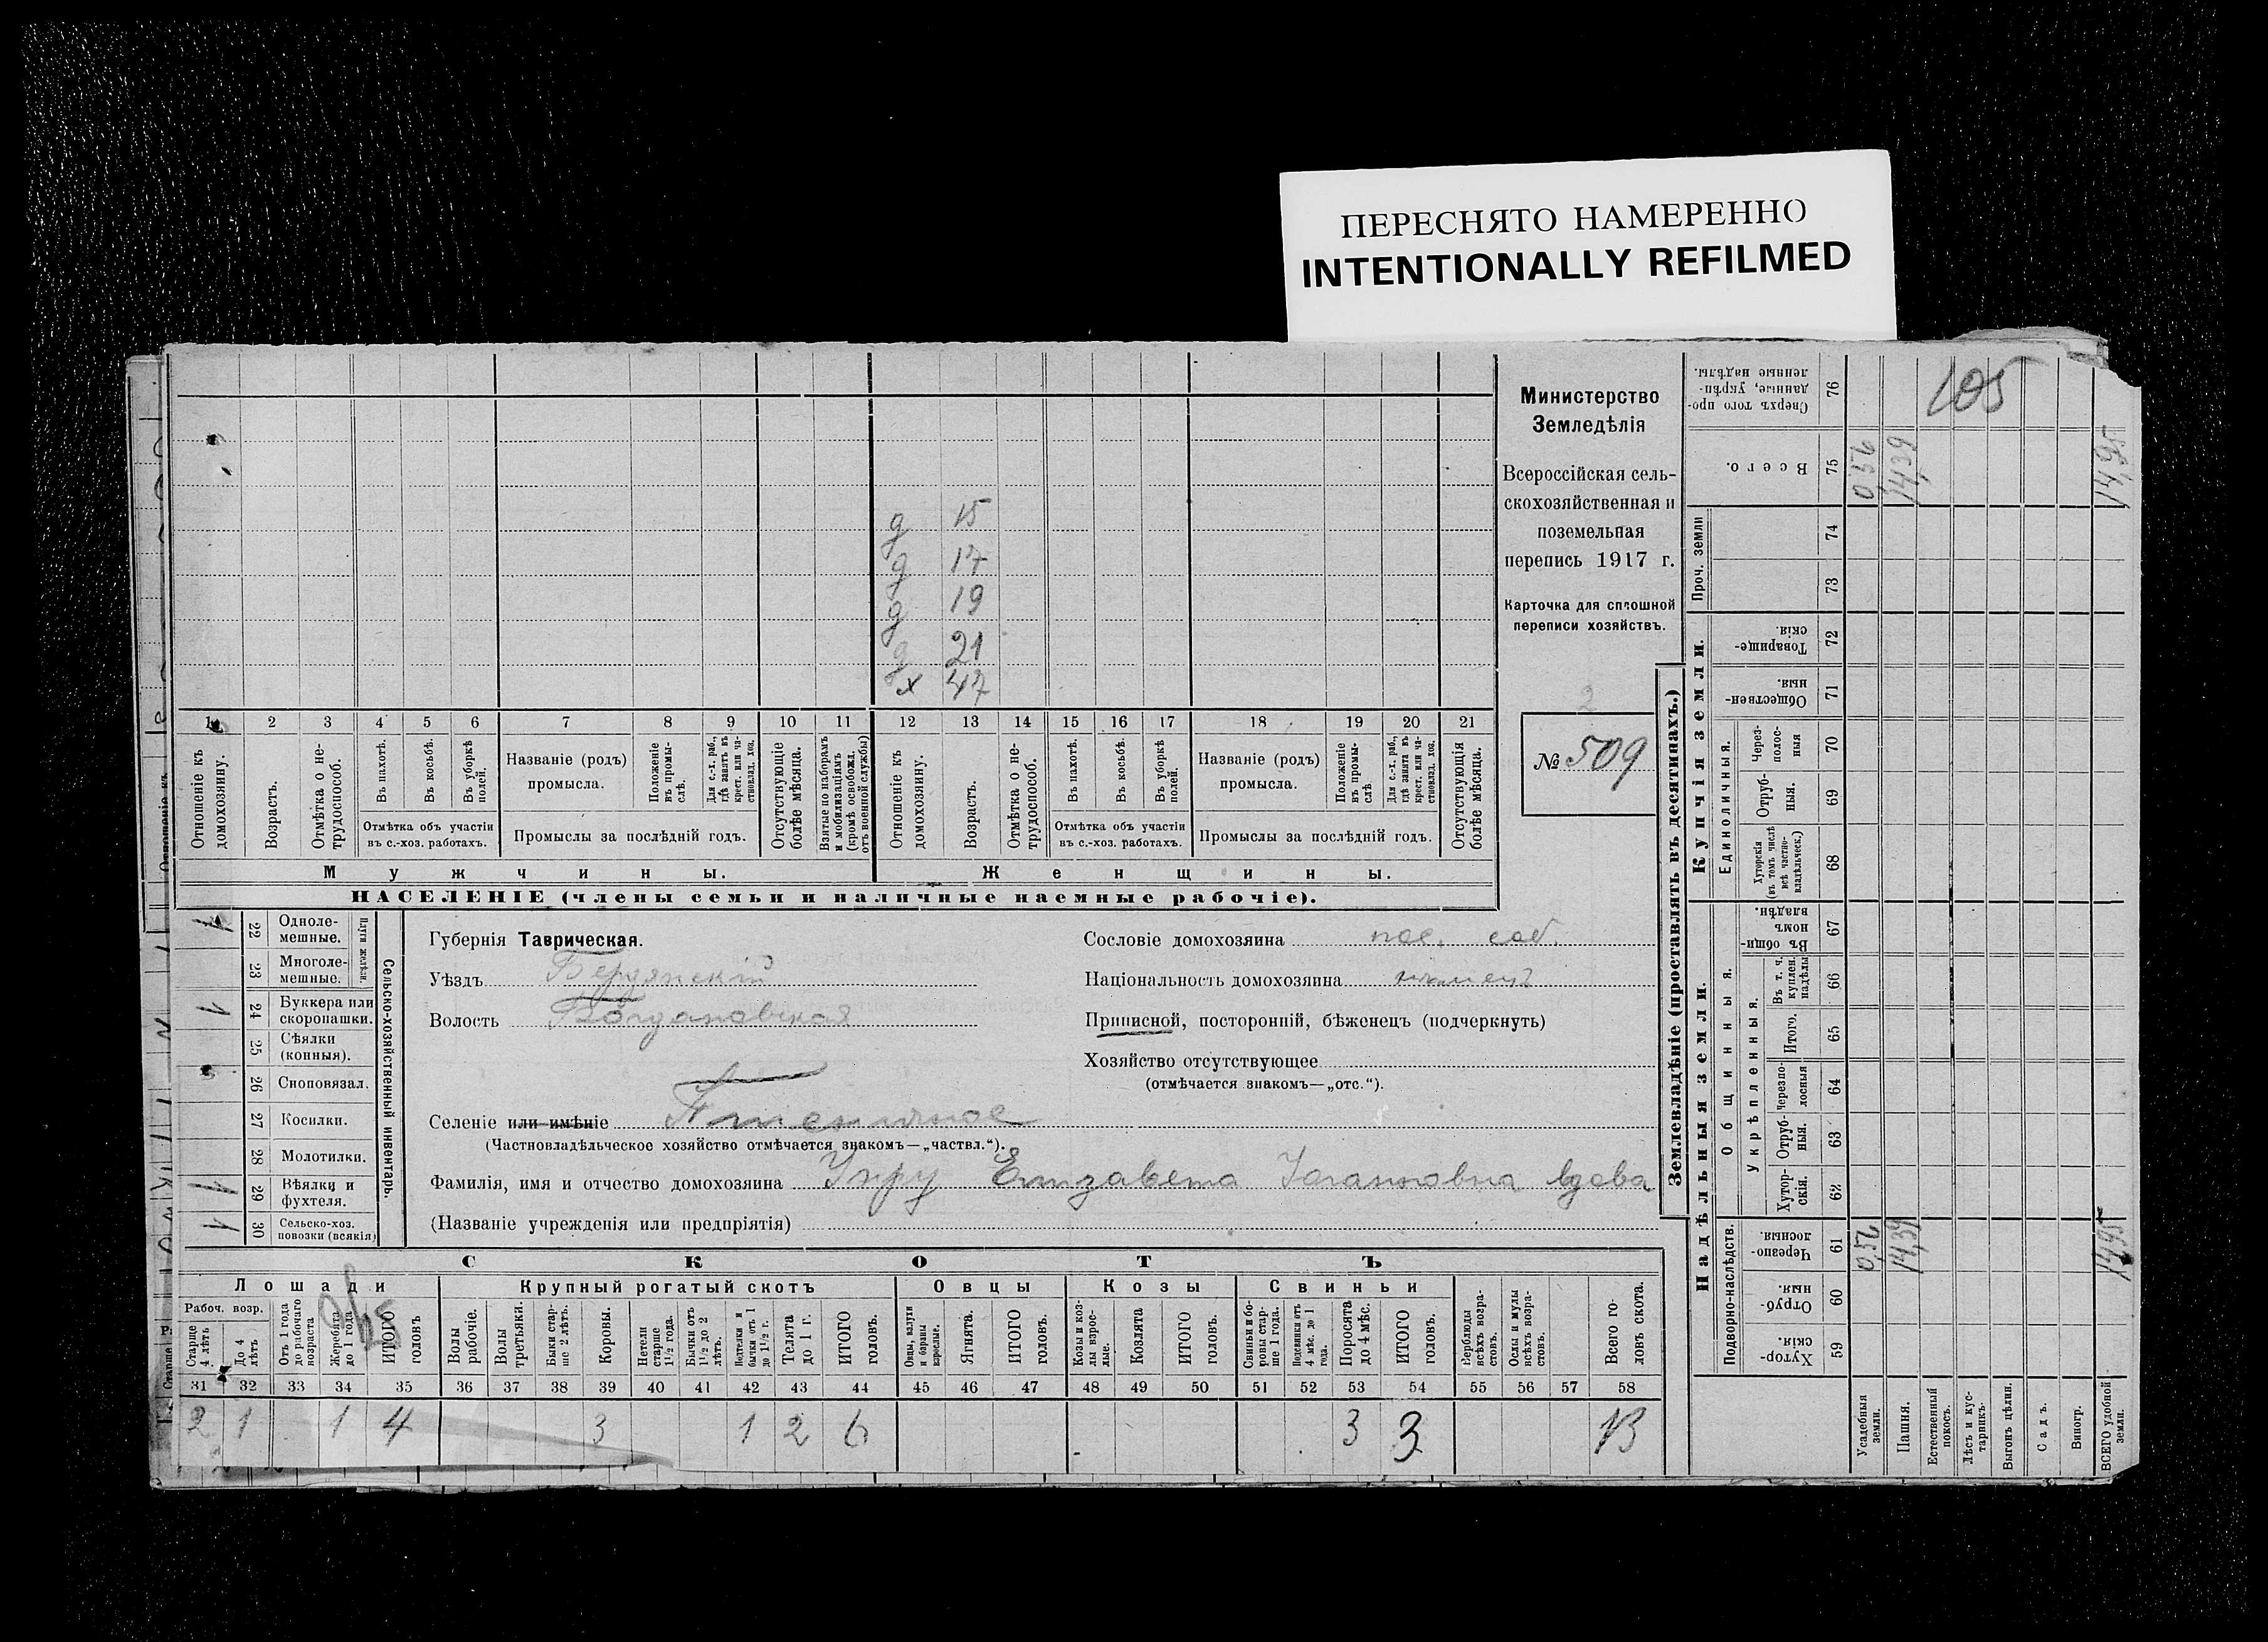 ПЕРЕСНЯТО НАМЕРЕННО
INTENTIONALLY REFILMED
105
Министерство
Земледѣлія
Всероссійская сель-
скохозяйственная и
поземельная
перепись 1917 г.
Карточка для сплошной
переписи хозяйствъ.
2
№ 509
д 15
д 17
д 19
д 21
х 47
1 2 3 4 5 6 7 8 9 10 11 12 13 14 15 16 17 18 19 20 21
Отношеніе къ домохозяину.
Возрастъ.
Отмѣтка о не-трудоспособ.
Въ пахотѣ.
Въ косьбѣ.
Въ уборкѣ полей.
Отмѣтка объ участіи въ с.-хоз. работахъ.
Названіе (родъ) промысла.
Положеніе въ промы-слѣ.
Для с.-х. раб., гдѣ занятъ въ крест. или ча-стновлад. хоз.
Промыслы за послѣдній годъ.
Отсутствующіе болѣе мѣсяца.
Взятые по наборамъ и мобилизаціямъ (кромѣ освобожд. отъ военной службы)
Отношеніе къ домохозяину.
Возрастъ.
Отмѣтка о не-трудоспособ.
Въ пахотѣ.
Въ косьбѣ.
Въ уборкѣ полей.
Отмѣтка объ участіи въ с.-хоз. работахъ.
Названіе (родъ) промысла.
Положеніе въ промы-слѣ
Для с.-х. раб., гдѣ занята въ крест. или ча-стновлад. хоз.
Промыслы за послѣдній годъ.
Отсутствующія болѣе мѣсяца.
Мужчины. Женщины.
НАСЕЛЕНІЕ (члены семьи и наличные наемные рабочіе).
Сельско-хозяйственный инвентарь.
Плуги желѣзн.
1 22 Одноле-мешные.
23 Многоле-мешные.
1 24 Буккера или скоропашки.
25 Сѣялки (конныя).
26 Сноповязал.
27 Косилки.
28 Молотилки.
1 29 Вѣялки и фухтеля.
1 30 Сельско-хоз. повозки (всякія)
Губернія Таврическая.
Уѣздъ Бердянскій
Волость Богдановская
Селеніе или имѣніе Пшеничное
(Частновладѣльческое хозяйство отмѣчается знакомъ—„частвл.“).
Фамилія, имя и отчество домохозяина Унру Елизавета Іогановна вдова
(Названіе учрежденія или предпріятія)
Сословіе домохозяина пос. соб.
Національность домохозяина нѣмецъ
Приписной, посторонній, бѣженецъ (подчеркнуть)
Хозяйство отсутствующее
(отмѣчается знакомъ—„отс.“).
СКОТЪ
Лошади Крупный рогатый скотъ Овцы Козы Свиньи
Рабоч. возр.
Старше 4 лѣтъ
До 4 лѣтъ
Отъ 1 года до рабочаго возраста
Жеребята до 1 года
ИТОГО головъ
Волы рабочіе.
Волы третьяки.
Быки стар-ше 2 лѣтъ.
Коровы.
Нетели старше 1½ года.
Бычки отъ 1½ до 2 лѣтъ.
Подтелки и бычки отъ 1 до 1½ г.
Телята до 1 г.
ИТОГО головъ.
Овцы, валухи и бараны взрослые.
Ягнята.
ИТОГО головъ.
Козы и коз-лы взрос-лые.
Козлята
ИТОГО головъ.
Свиньи и бо-ровы стар-ше 1 года.
Подсвинки отъ 4 мѣс. до 1 года.
Поросята до 4 мѣс.
ИТОГО головъ.
Верблюды всѣхъ возра-стовъ.
Ослы и мулы всѣхъ возра-стовъ.
Всего го-ловъ скота.
31 32 33 34 35 36 37 38 39 40 41 42 43 44 45 46 47 48 49 50 51 52 53 54 55 56 57 58
2 1 1 4 3 1 2 6 3 3 13
Землевладѣніе (проставлять въ десятинахъ.)
Надѣльныя земли. Купчія земли.
Проч. земли
Подворно-наслѣдств.
Общинныя.
Укрѣпленныя.
Единоличныя.
Сверхъ того про-данные, укрѣп-ленные надѣлы. 76
Всего. 75 0,56 14,39 14,95
74
73
Товарище-скія. 72
Обществен-ныя. 71
Через-полос-ныя 70
Отруб-ныя. 69
Хуторскія (въ томъ числѣ всѣ частно-владѣльческ.) 68
Въ общин-номъ владѣн. 67
Въ т. ч. куплен. надѣлы 66
Итого. 65
Черезпо-лосныя 64
Отруб-ныя. 63
Хутор-скія. 62
Черезпо-лосныя. 61 0,56 14,39 14,95
Отруб-ныя. 60
Хутор-скія. 59
Усадебныя земли.
Пашня.
Естественный покосъ.
Лѣсъ и кус-тарникъ.
Выгонъ цѣлин.
Садъ.
Виногр.
ВСЕГО удобной земли.